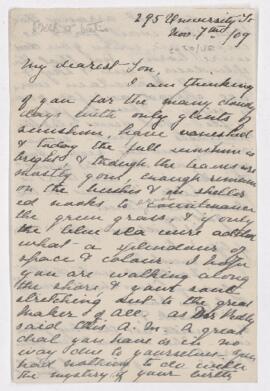 295 University St
Nov. 7 /09
My dearest Son,
I am thinking
of you for the many cloudy
days with only glints of
sunshine, have vanished
& today the full sunshine is
bright & though the leaves are
mostly gone, enough remain
on the bushes & in shelter
ed nooks to countenance
the green grass, & if only
the blue sea were added
what a splendour of
space & colour. I hope
you are walking along
the shore & your soul
stretching out to the great
Maker of All. as
said this A.M. A great
deal you have is in no
way due to yourselves. you
had nothing to do with
the mystery of your birth